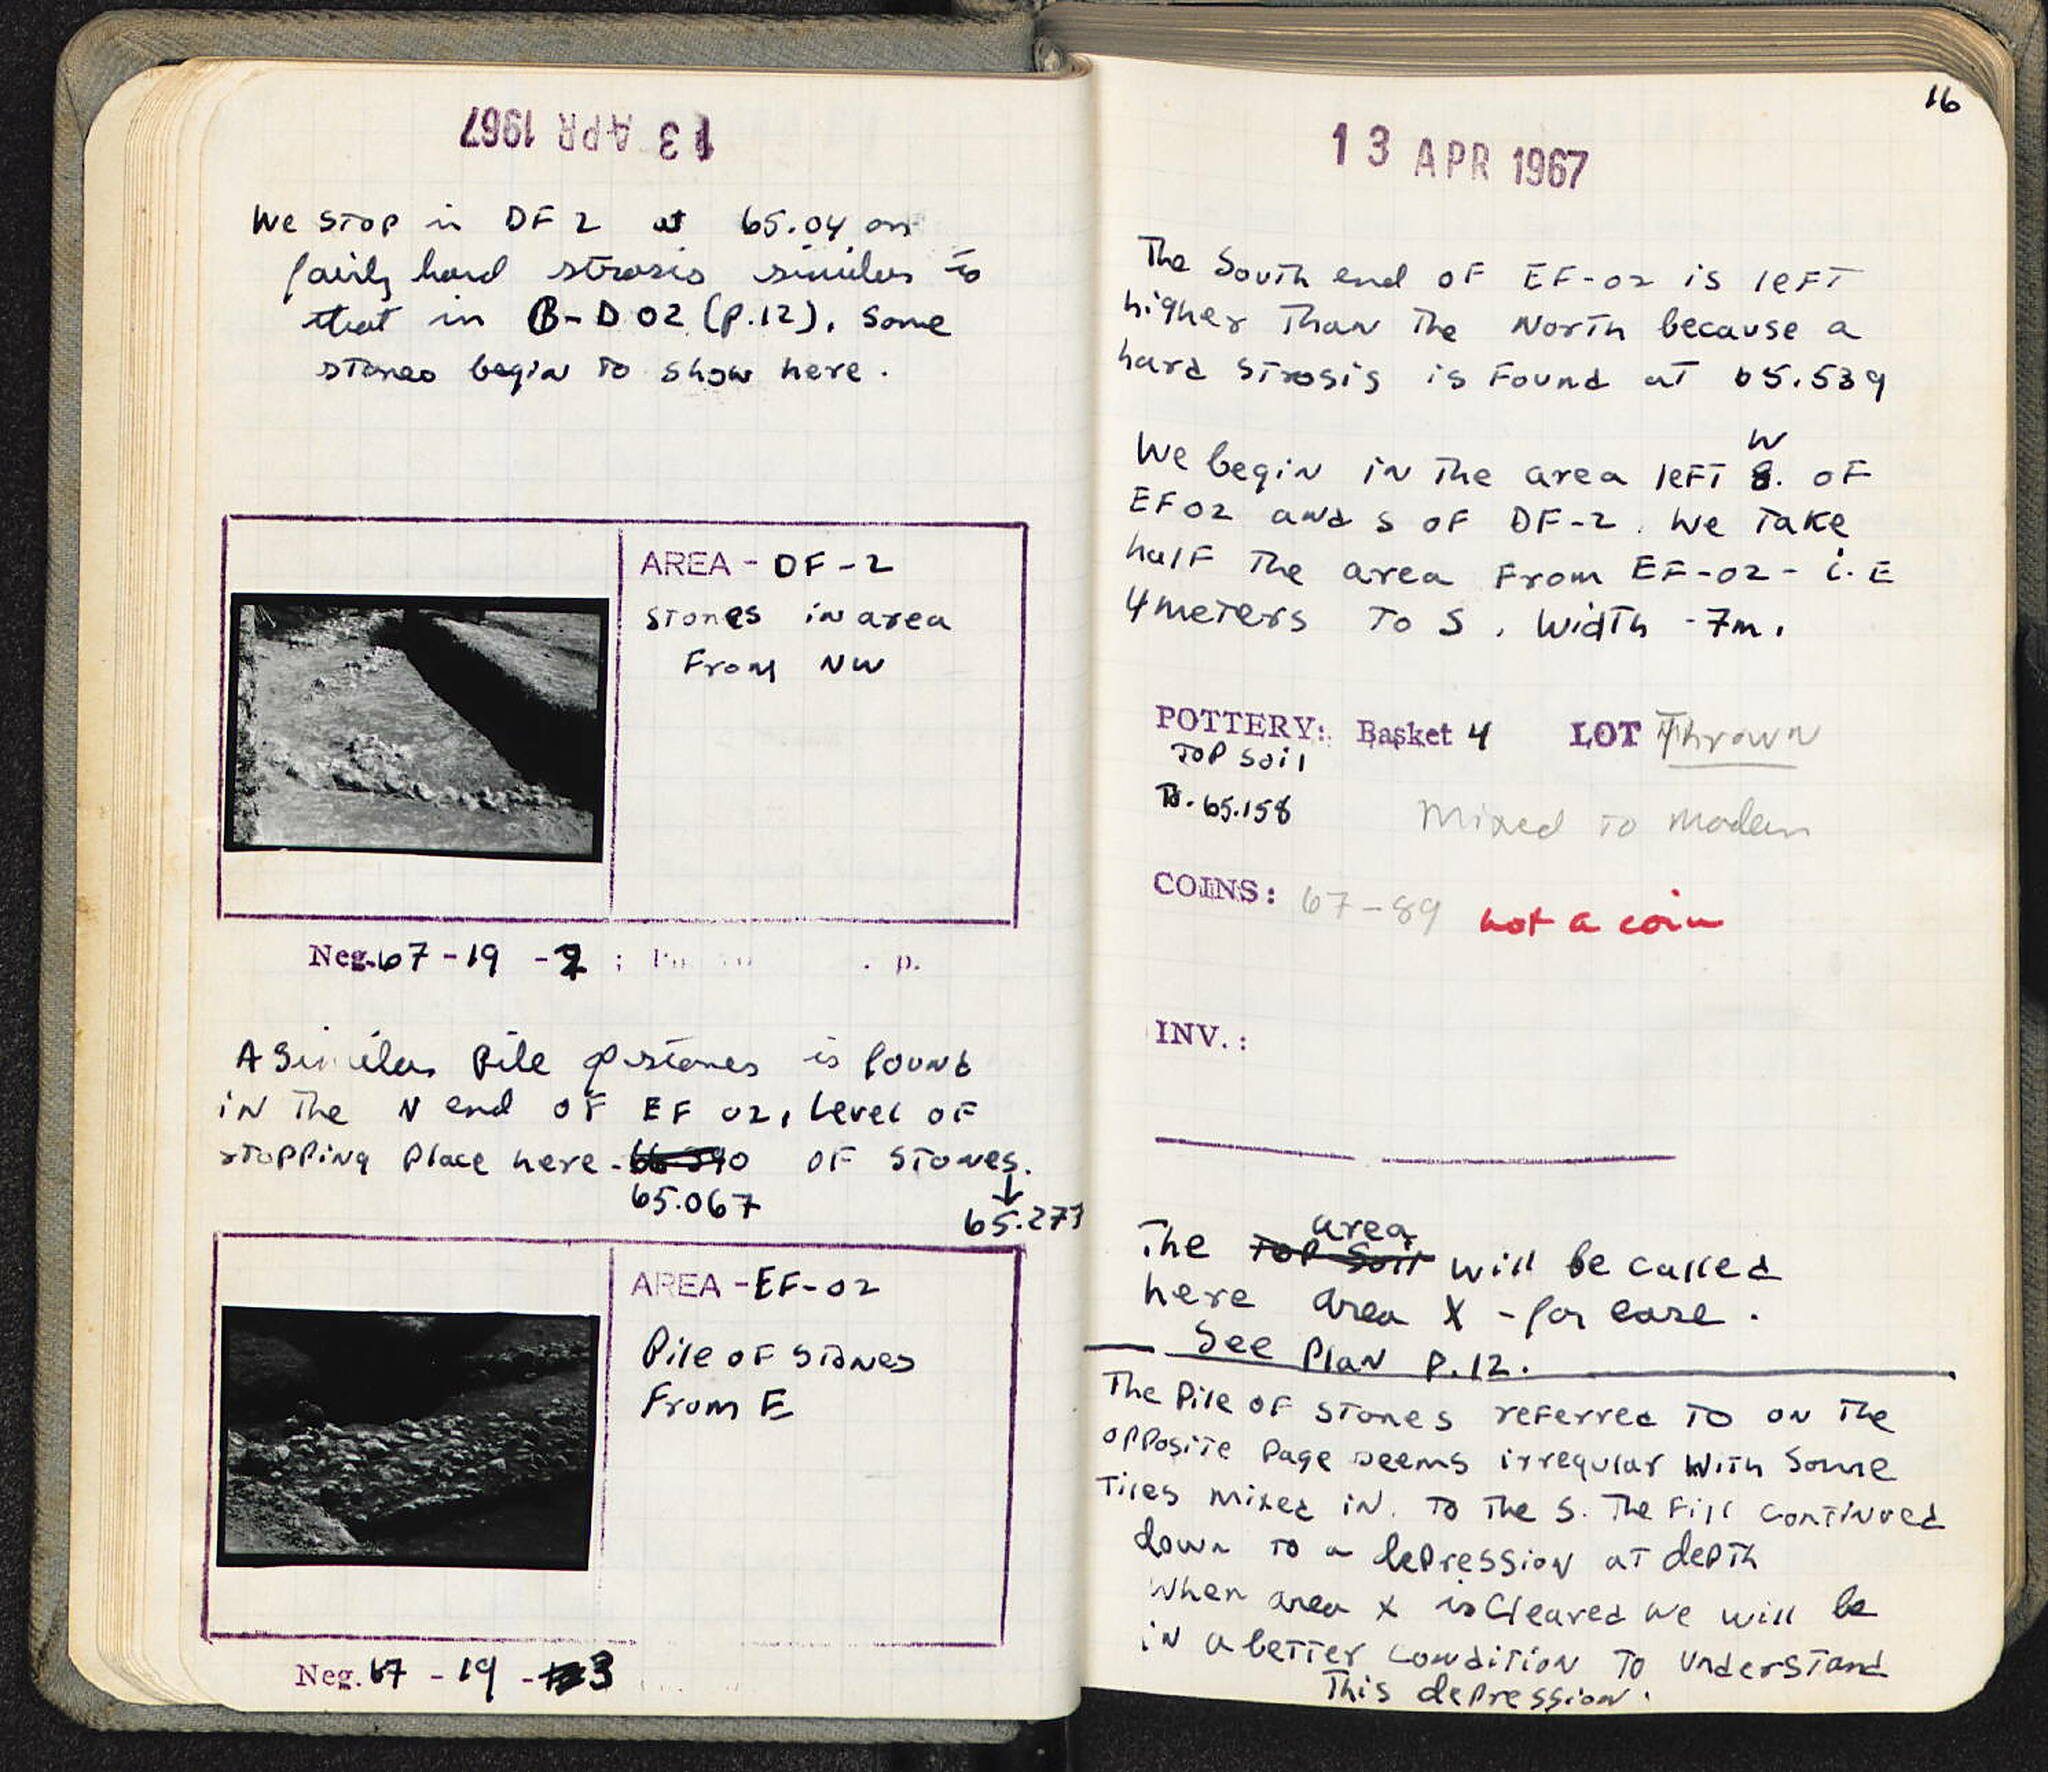 13 APR 1967
We stop in DF 2 at 65.04 on
fairly hard strosis similar to
that in B-D 02 (p.12). Some
stones begin to show here.
AREA - DF-2
Stones in area
From NW
Neg. 67-19-2 ; p.
A similar pile of stones is found
in the N end of EF 02, Level of
stopping place here - of stones.
65.067
65.277
AREA - EF-02
Pile of stones
From E
Neg. 67-19-3
16
13 APR 1967
The South end of EF-02 is left
higher than the North because a
hard strosis is found at 65.539
W
We begin in the area left of
EF02 and S of DF-2. We take
half the area from EF-02 - i.E
4 meters to S. Width - 7m.
POTTERY: Basket 4 LOT Thrown
Top soil
To. 65.158
Mixed to modern
COINS: 67-89 not a coin
INV.:
area
The Top Soil will be called
here area X - for ease.
See Plan P.12.
The Pile of stones referred to on the
opposite page seems irregular with some
tiles mixed in. To the S. the fill continued
down to a depression at depth
When area X is cleared we will be
in a better condition to understand
this depression.